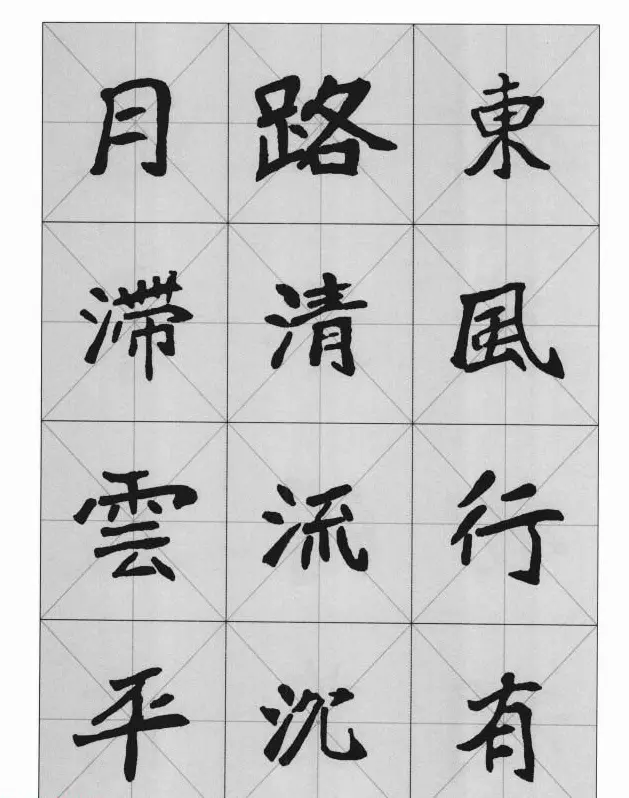 東風行有
路清流沉
月滯雲平